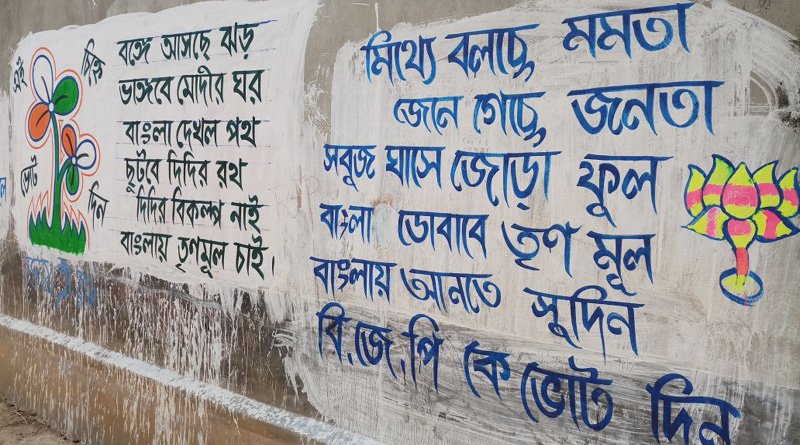 এই চিহ্নে
ভোট দিন
বঙ্গে আসছে ঝড়
ভাঙ্গবে মোদীর ঘর
বাংলা দেখল পথ
ছুটবে দিদির রথ
দিদির বিকল্প নাই
বাংলায় তৃণমূল চাই।
মিথ্যে বলছে, মমতা
জেনে গেছে, জনতা
সবুজ ঘাসে জোড়া ফুল
বাংলা ডোবাবে তৃণ মূল
বাংলায় আনতে সুদিন
বি.জে.পি কে ভোট দিন